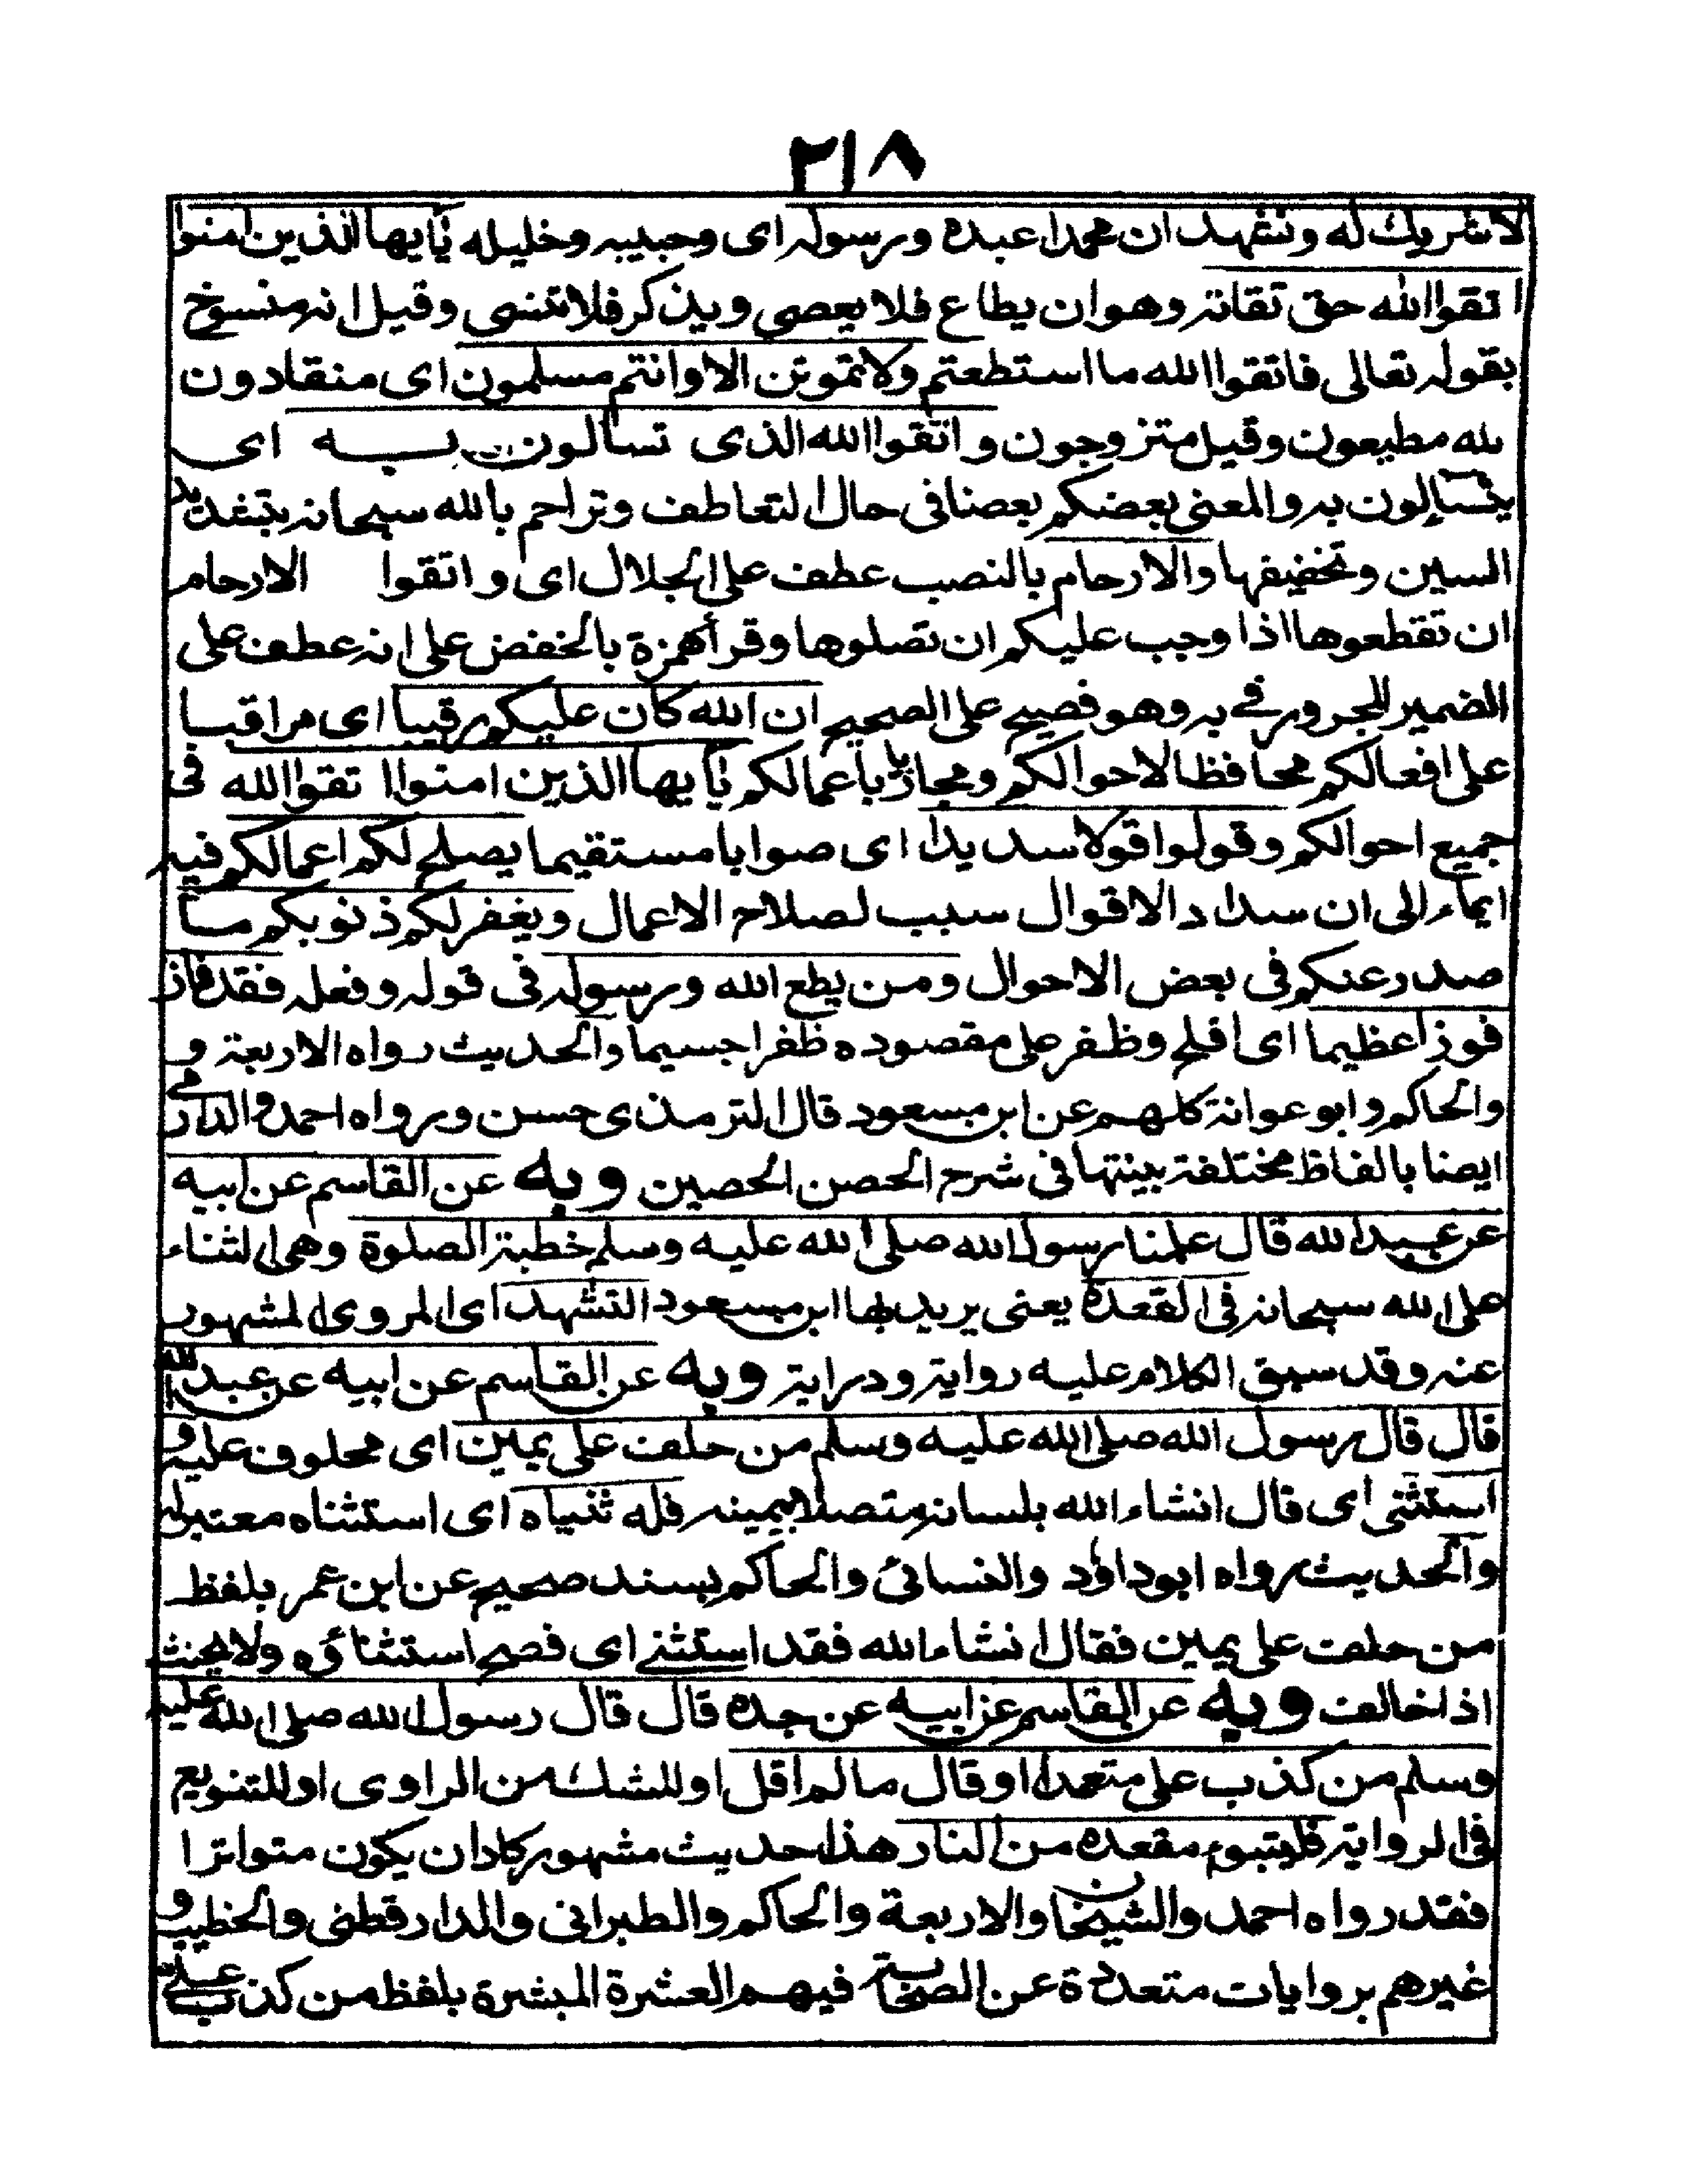 ٢١٨
لا شريك له ونشهد ان محمدا عبده ورسوله اى وحبيبه وخليله يٰايها الذين امنوا
اتقوا الله حق تقاته وهو ان يطاع فلا يعصى ويذكر فلا تنسى وقيل انه منسوخ
بقوله تعالى فاتقوا الله ما استطعتم ولا تموتن الا وانتم مسلمون اى منقادون
لله مطيعون وقيل متزوجون واتقوا الله الذى تسألون به اى
يتسألون به والمعنى بعضكم بعضا فى حال التعاطف وتراحم بالله سبحانه بتشديد
السين وتخفيفها والارحام بالنصب عطف على الجلال اى واتقوا الارحام
ان تقطعوها اذا وجب عليكم ان تصلوها وقرأ همزة بالخفض على انه عطف على
الضمير المجرور فى به وهو فصيح على الصحيح ان الله كان عليكم رقيبا اى مراقبا
على افعالكم محافظا لاحوالكم ومجازيا باعمالكم يٰايها الذين امنوا اتقوا الله فى
جميع احوالكم وقولوا قولا سديدا اى صوابا مستقيما يصلح لكم اعمالكم فيه
ايماء الى ان سداد الاقوال سبب لصلاح الاعمال ويغفر لكم ذنوبكم ما
صدر عنكم فى بعض الاحوال ومن يطع الله ورسوله فى قوله وفعله فقد فاز
فوزا عظيما اى افلح وظفر على مقصوده ظفرا جسيما والحديث رواه الاربعة و
والحاكم وابو عوانة كلهم عن ابن مسعود قال الترمذى حسن ورواه احمد والدارمى
ايضا بالفاظ مختلفة بينتها فى شرح الحصن الحصين وبه عن القاسم عن ابيه
عن عبد الله قال علمنا رسول الله صلى الله عليه وسلم خطبة الصلوة وهى الثناء
على الله سبحانه فى القعدة يعنى يريد بها ابن مسعود التشهد اى المروى المشهور
عنه وقد سبق الكلام عليه رواية ودراية وبه عن القاسم عن ابيه عن عبد الله
قال قال رسول الله صلى الله عليه وسلم من حلف على يمين اى محلوف عليه و
استثنى اى قال انشاء الله بلسانه متصلا بيمينه فله ثنياه اى استثناه معتبر له
والحديث رواه ابو داؤد والنسائى والحاكم بسند صحيح عن ابن عمر بلفظ
من حلف على يمين فقال انشاء الله فقد استثنى اى فصح استثناؤه ولا يحنث
اذا خالف وبه عن القاسم عن ابيه عن جده قال قال رسول الله صلى الله عليه
وسلم من كذب على متعمدا او قال ما لم اقل او للشك من الراوى او للتنويع
فى الرواية فليتبوء مقعده من النار هذا حديث مشهور كاد ان يكون متواترا
فقد رواه احمد والشيخان والاربعة والحاكم والطبرانى والدارقطنى والخطيب و
غيرهم بروايات متعددة عن الصحابة فيهم العشرة المبشرة بلفظ من كذب على